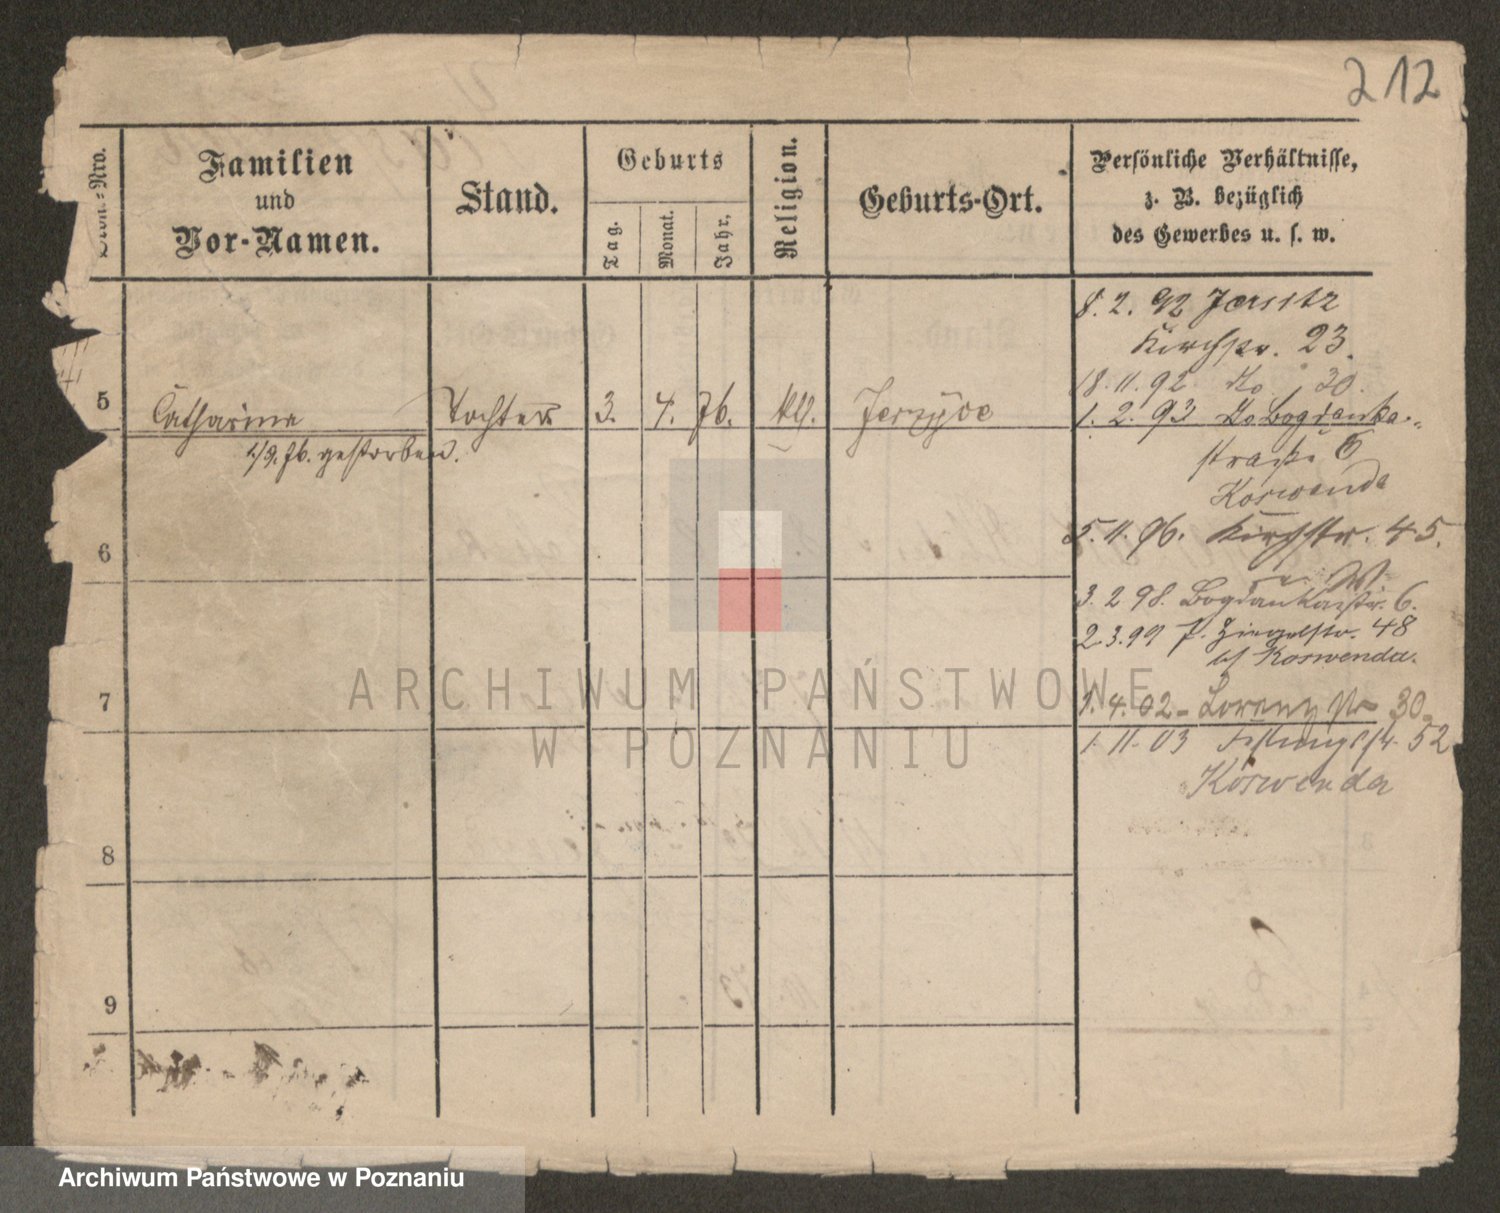 212
Nro.
Familien
und
Vor-Namen.
Stand.
Geburts
Tag.
Monat.
Jahr,
Religion.
Geburts-Ort.
Persönliche Verhältnisse,
z. B. bezüglich
des Gewerbes u. s. w.
8. 2. 92 Jersitz
Kirchstr. 23.
18. 11. 92 do 30.
5 Catharina Tochter 3. 4. 76. kth. Jerzyce
1. 2. 93 do Bogdanka-
1/9. 76. gestorben.
straße 6
Koswenda
6
5. 11. 96. Kirchstr. 45.
3. 2. 98. Bogdankastr. 6.
2. 3. 99 Ziegelstr. 48
bf Koswenda.
7
1. 4. 02 - Lorenzstr 30.
1. 11. 03 Festungsstr. 52
Koswenda
8
9
ARCHIWUM PAŃSTWOWE
W POZNANIU
Archiwum Państwowe w Poznaniu